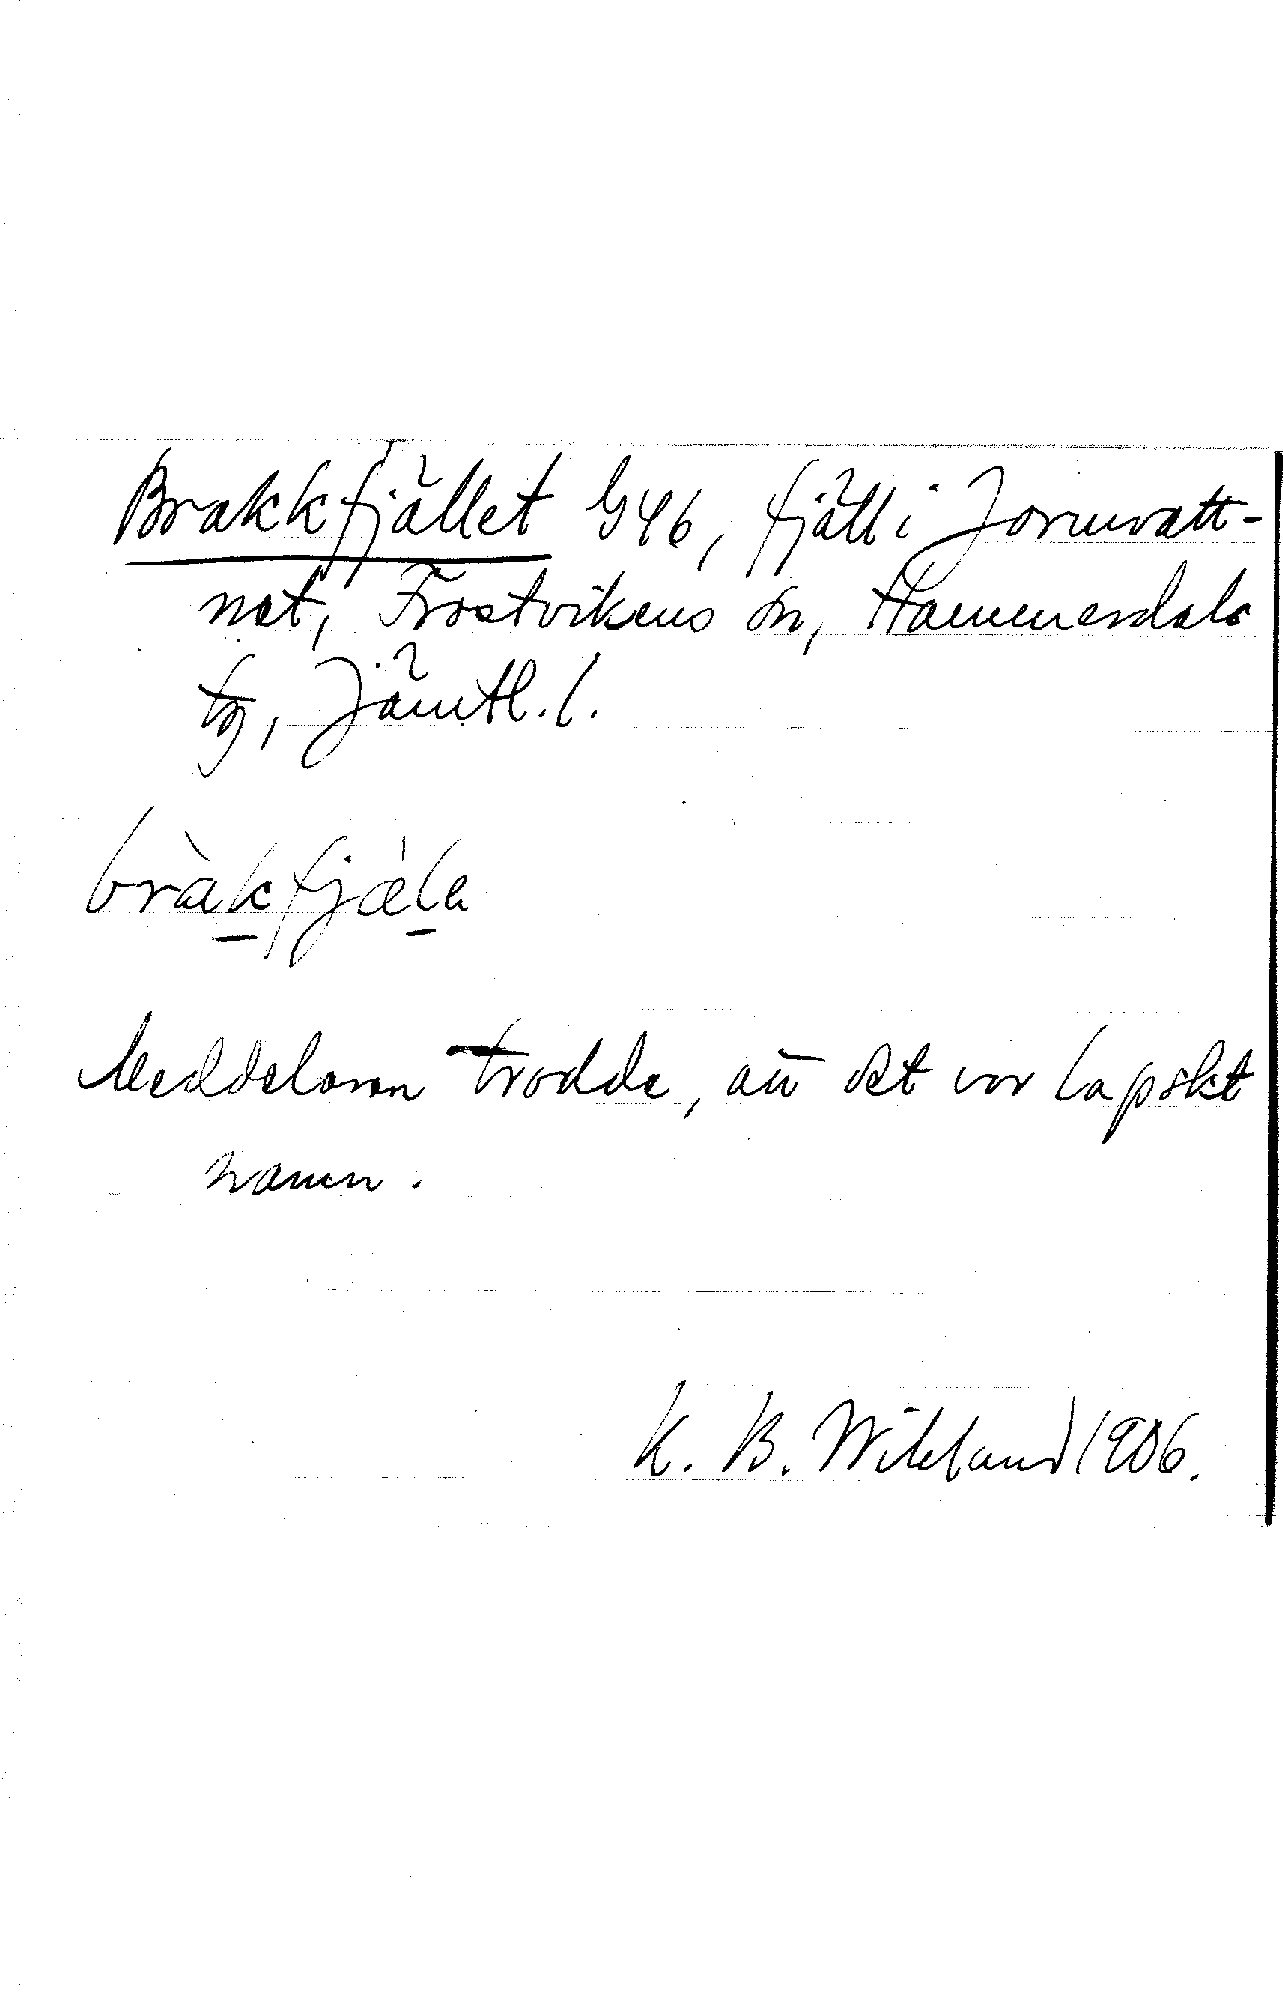 Brakkfjället G46, fjäll i Jormvatt-
net, Frostvikens sn, Hammerdals
tg, Jämtl. l.
bràkfjæ̀la
Meddelaren trodde, att det var lapskt
namn.
K. B. Wiklund 1906.